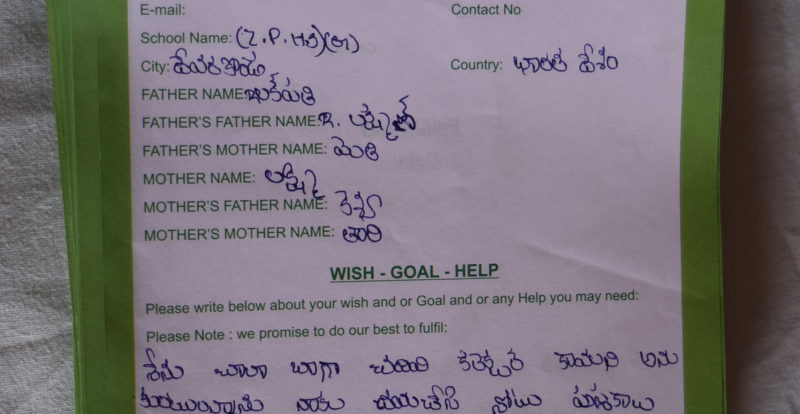 E-mail: Contact No
School Name: (Z.P.HS)
City: Country: భారత దేశం
FATHER NAME:
FATHER'S FATHER NAME: R.
FATHER'S MOTHER NAME: మొతి
MOTHER NAME: లక్ష్మి
MOTHER'S FATHER NAME:
MOTHER'S MOTHER NAME:
WISH - GOAL - HELP
Please write below about your wish and or Goal and or any Help you may need:
Please Note : we promise to do our best to fulfil:
నేను చాలా బాగా చదివి కలెక్టర్ కావాలని అను
కుంటున్నాను నాకు దయచేసి నోటు పుస్తకాలు